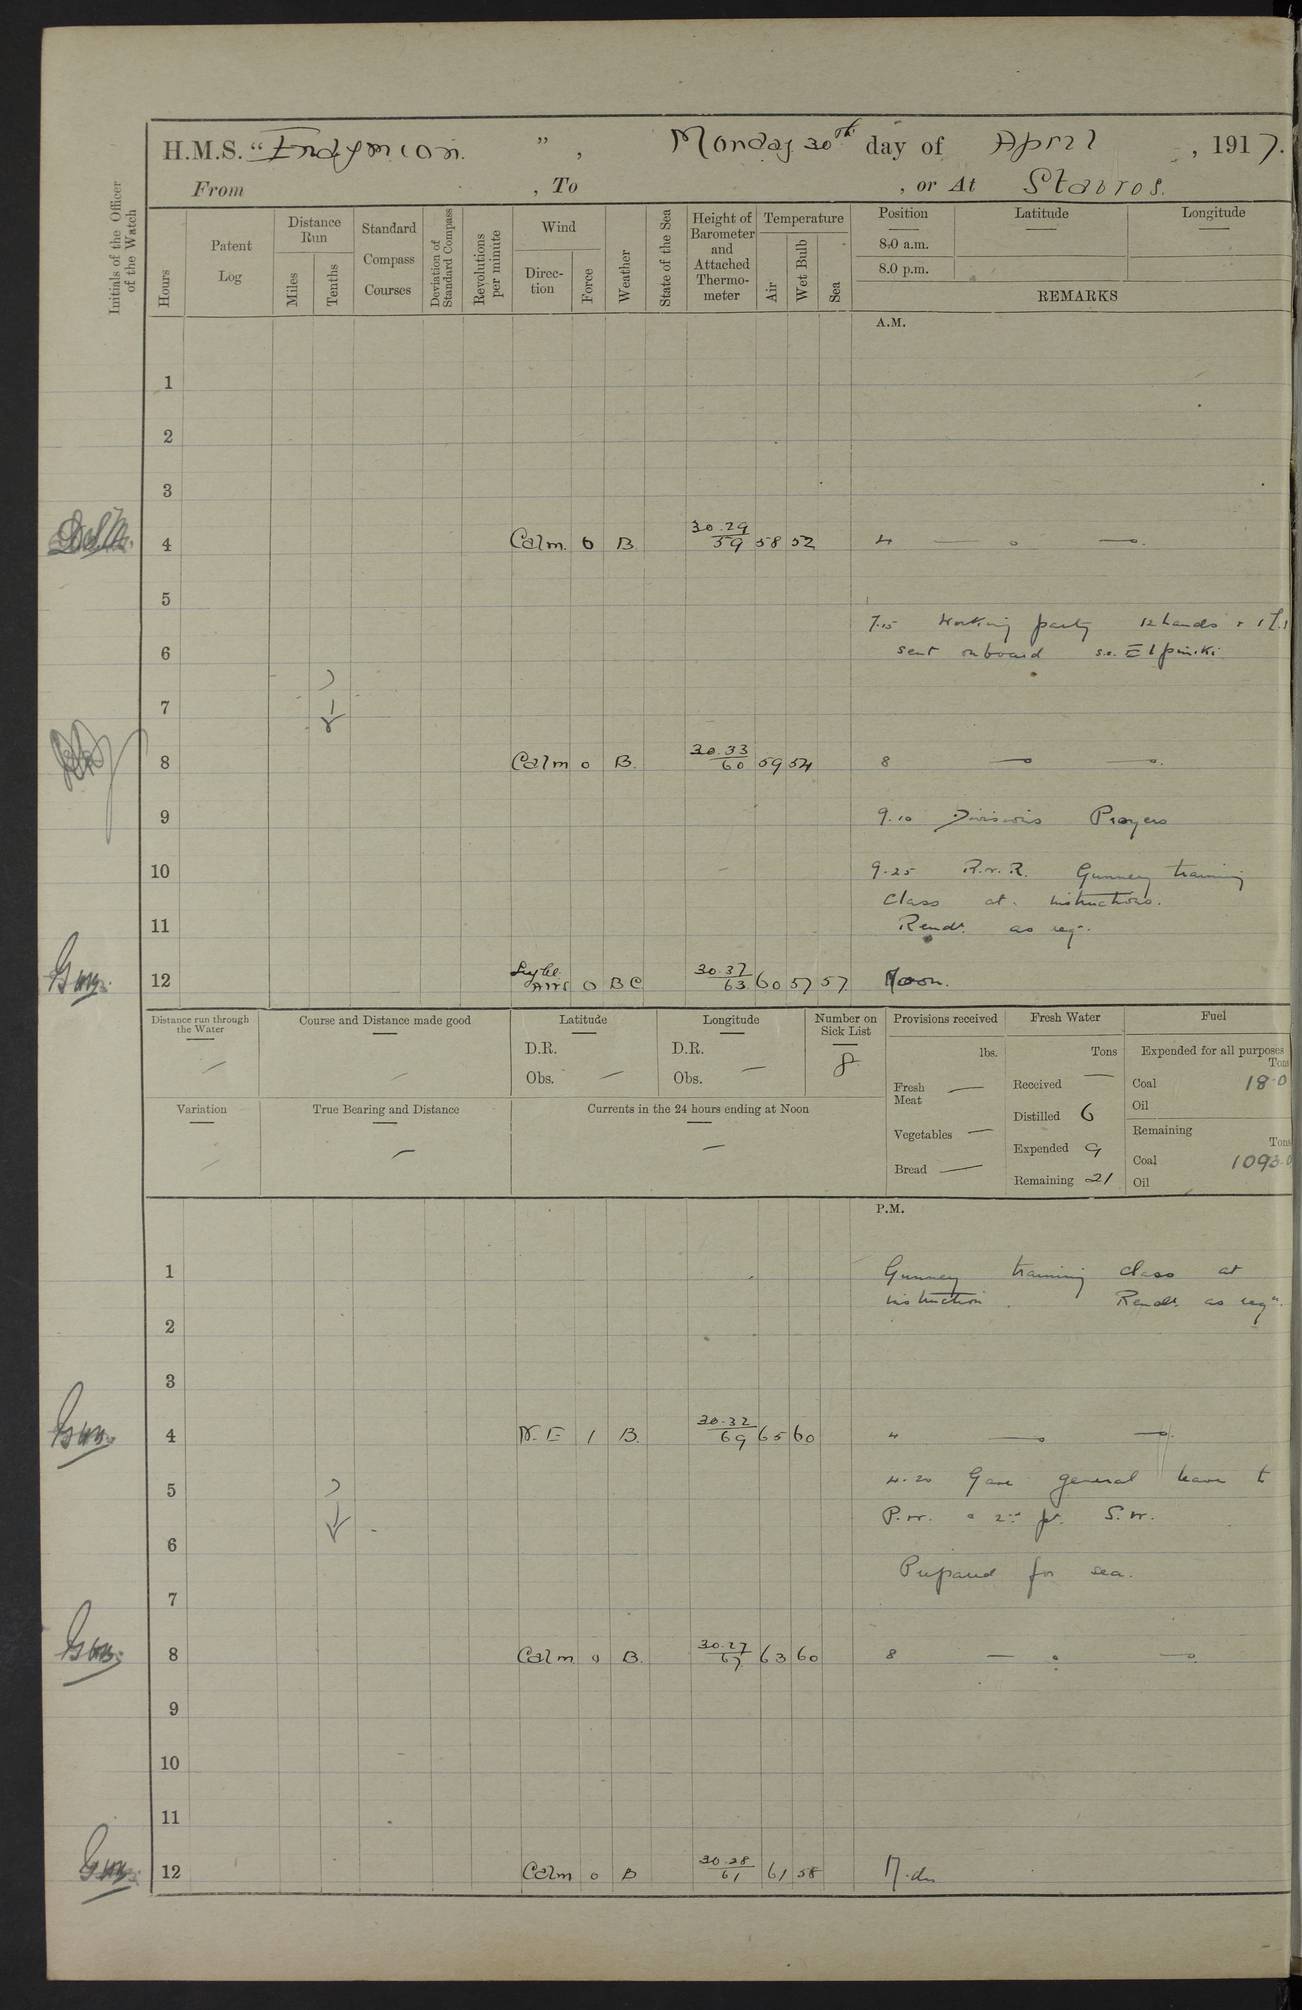 H.M.S. "Endymion. ", Monday 30th day of April, 1917.
From , To , or At Stavros.
Initials of the Officer of the Watch
Hours
Patent Log
Distance Run
Miles
Tenths
Standard Compass Courses
Deviation of Standard Compass
Revolutions per minute
Wind
Direction
Force
Weather
State of the Sea
Height of Barometer and Attached Thermometer
Temperature
Air
Wet Bulb
Sea
Position Latitude Longitude
8.0 a.m.
8.0 p.m.
REMARKS
A.M.
1
2
3
4 Calm. 0 B 30.29/59 58 52 4
5
7.15 Working party 12 hands
6 sent onboard s.s. Elpiniki
7
8 Calm 0 B. 30.33/60 59 54 8
9 9.10 Divisions Prayers
10 9.25 R.N.R. Gunnery training
class at instructions.
11 Rendr. as reqr.
12 Light Airs 0 BC 30.37/63 60 57 57 Noon.
Distance run through the Water
Course and Distance made good
Latitude
D.R.
Obs. —
Longitude
D.R.
Obs. —
Number on Sick List
8
Provisions received
lbs.
Fresh Meat —
Vegetables —
Bread —
Fresh Water
Tons
Received —
Distilled 6
Expended 9
Remaining 21
Fuel
Expended for all purposes
Tons
Coal 18.0
Oil
Remaining
Tons
Coal 1093.0
Oil
Variation
True Bearing and Distance
—
Currents in the 24 hours ending at Noon
—
P.M.
1 Gunnery training class at
instruction. Rendr. as reqr.
2
3
4 N.E 1 B. 30.32/69 65 60 4
5 4.20 Gave general leave to
P.W. & 2nd pt. S.W.
6
Prepared for sea.
7
8 Calm 0 B. 30.27/67 63 60 8
9
10
11
12 Calm 0 B 30.28/61 61 58 M.dn